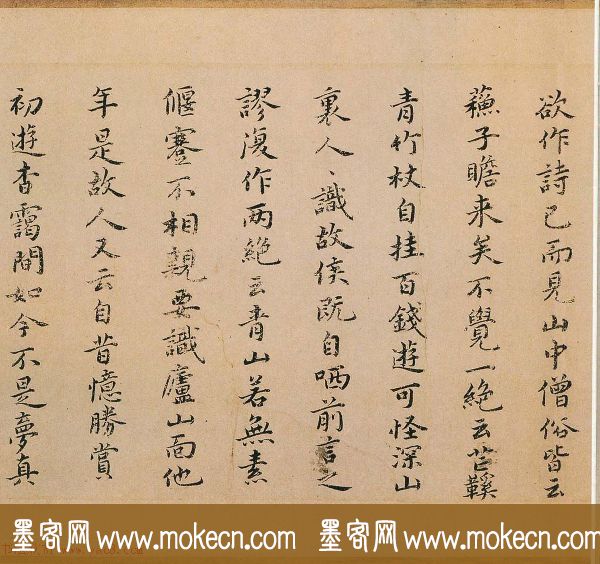 欲作詩已而見山中僧俗皆云
蘓子瞻来矣不覺一絶云芒鞵
青竹杖自挂百錢遊可怪深山
裏人、識故侯既自哂前言之
謬復作两絶云青山若無素
偃蹇不相親要識廬山面他
年是故人又云自昔憶勝賞
初遊杳靄間如今不是夢真
墨客网 www.mokecn.com 墨客网 www.mokecn.com